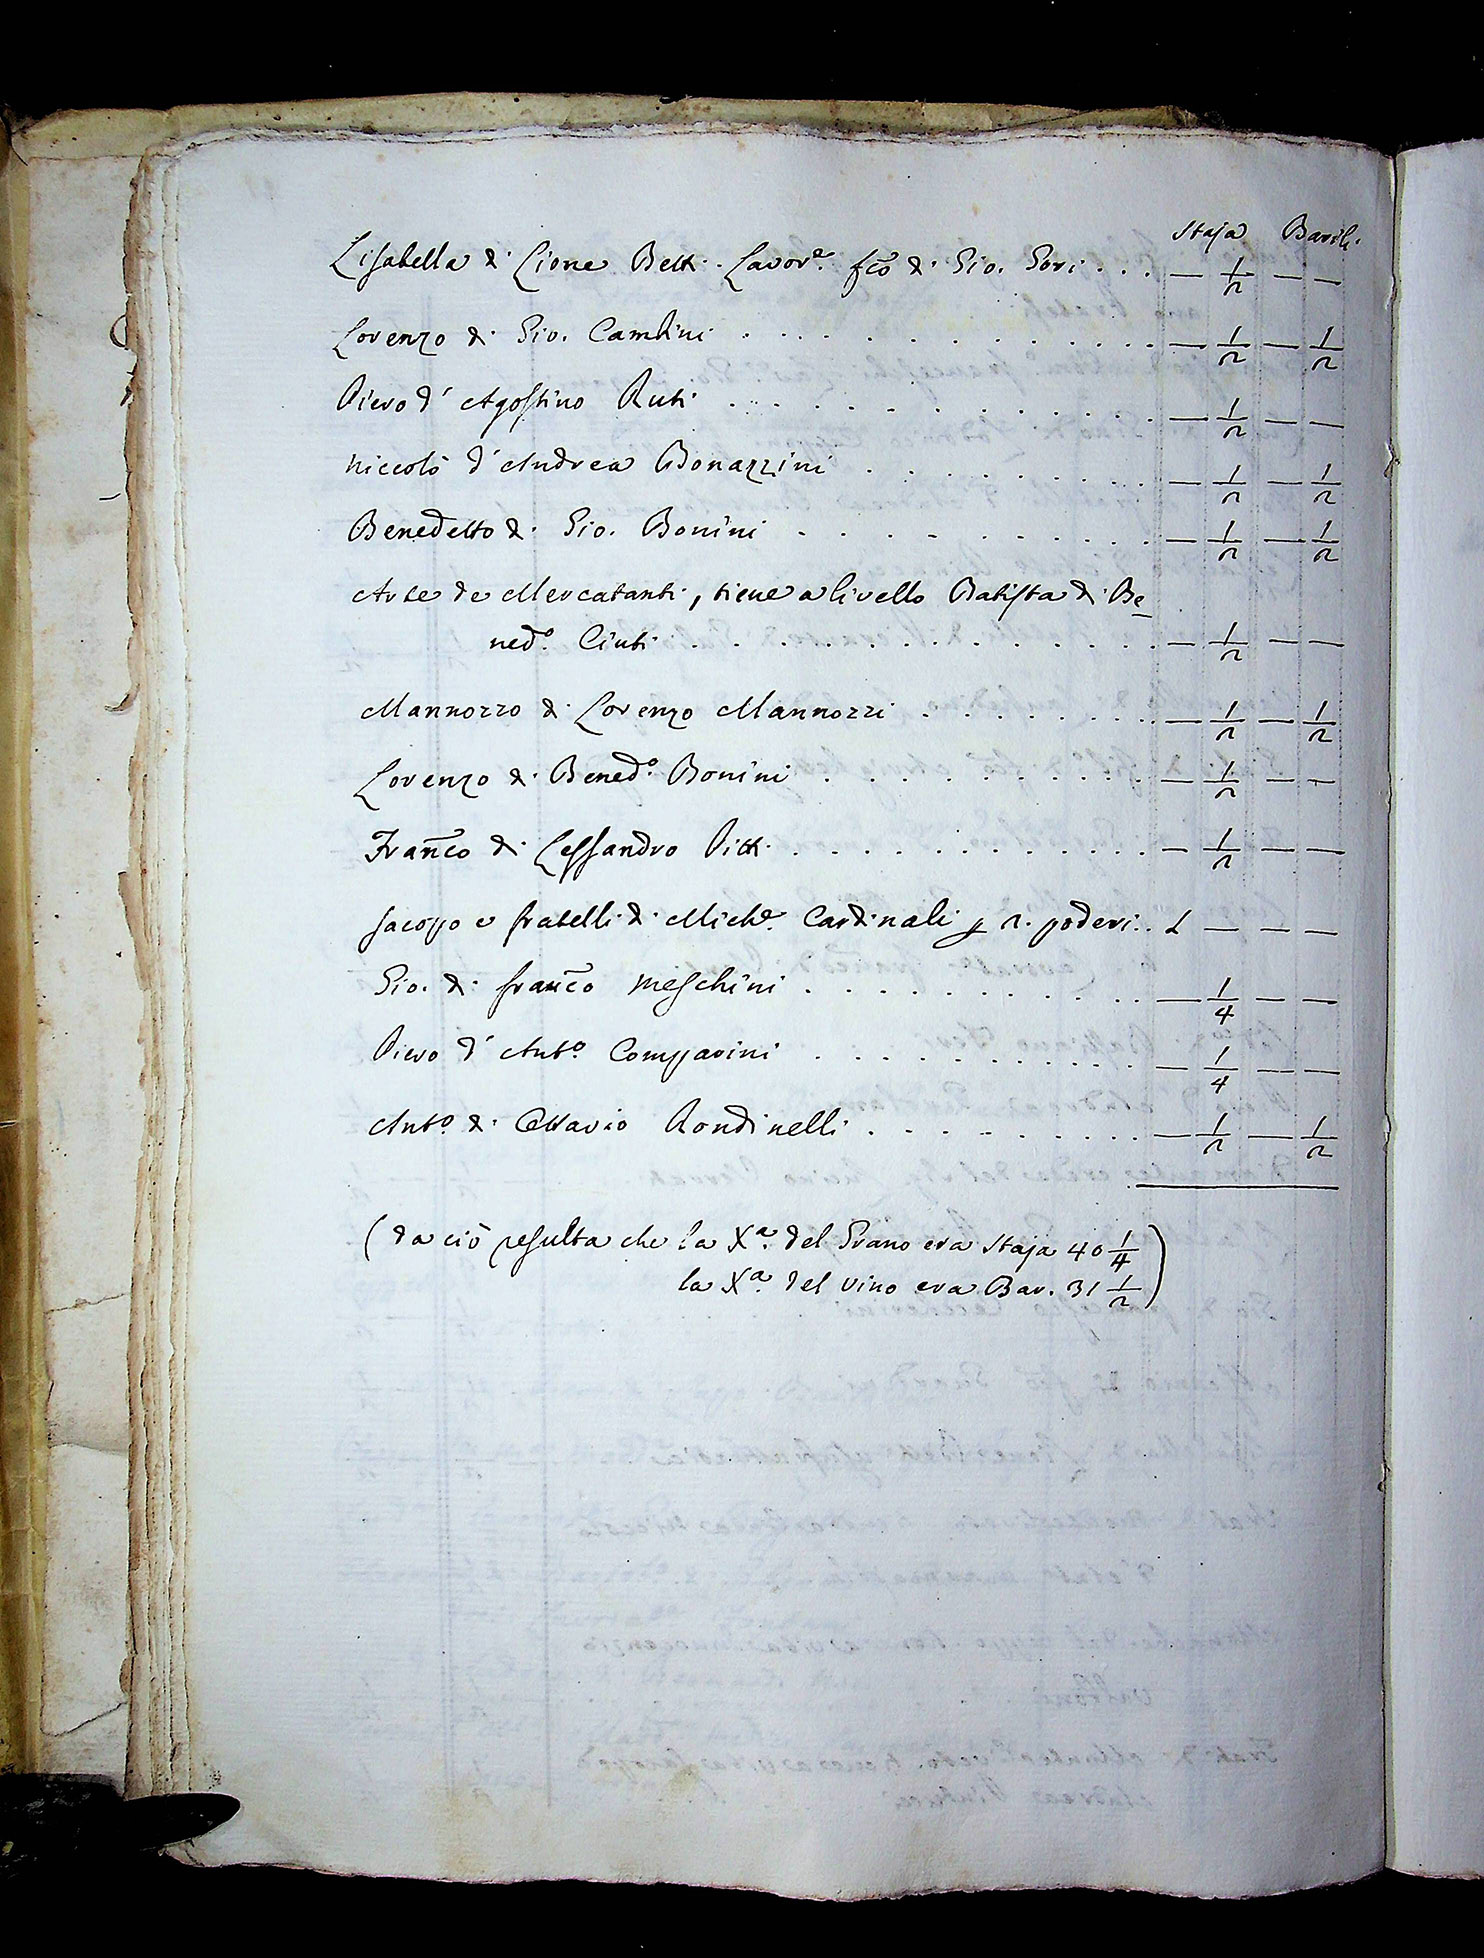 Staja Barili
Lisabella di Lione Betti Lavore. fco di Gio. Gori . . . — 1/2 — —
Lorenzo di Gio. Cambini . . . — 1/2 — 1/2
Piero d' Agostino Ruti . . . — 1/2 — —
Niccolò d' Andrea Bonazzini . . . — 1/2 — 1/2
Benedetto di Gio. Bonini . . . — 1/2 — 1/2
Arte de Mercatanti, tiene a livello Batista di Be
nedo. Ciuti . . . — 1/2 — —
Mannozzo di Lorenzo Mannozzi . . . — 1/2 — 1/2
Lorenzo di Benedo. Bonini . . . — 1/2 — —
Franco di Lessandro Pitti . . . — 1/2 — —
Jacopo e fratelli di Miche. Cardinali p 2. poderi . . 1 — — —
Gio. di franco Meschini . . . — 1/4 — —
Piero d' Anto. Comparini . . . — 1/4 — —
Anto. di Ottavio Rondinelli . . . — 1/2 — 1/2
(da ciò resulta che la Xa. del Grano era Staja 40 1/4
la Xa. del vino era Bar. 31 1/2)